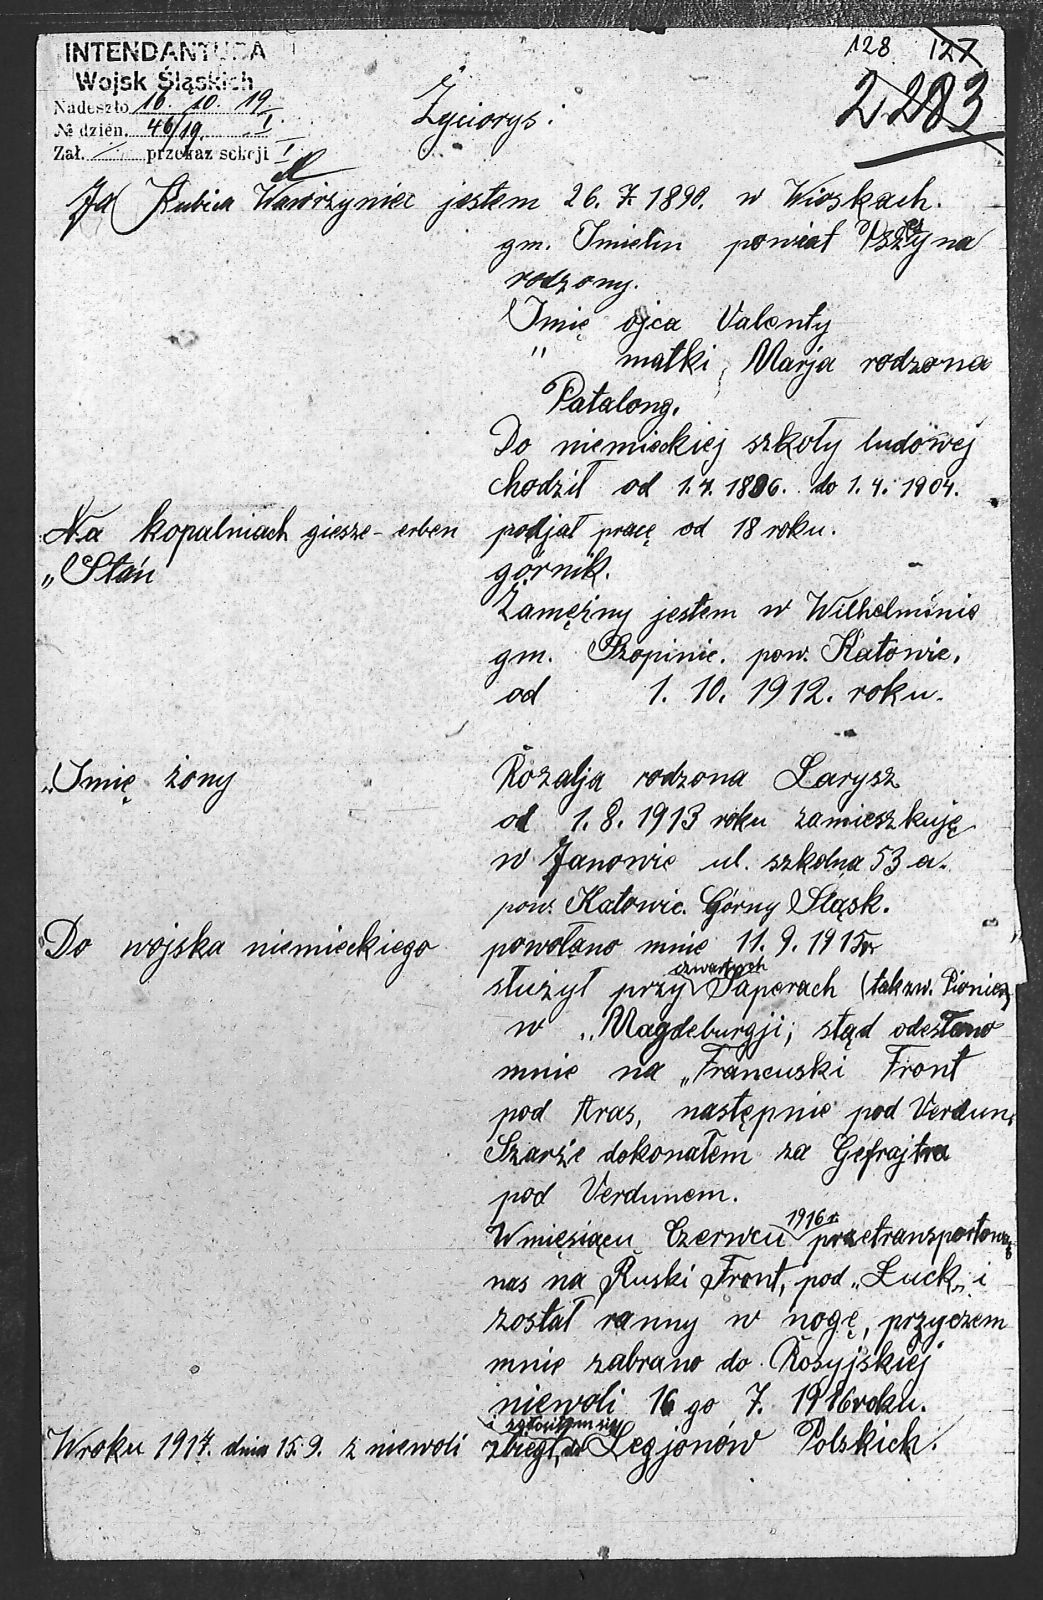 INTENDANTURA
Wojsk Śląskich
Nadeszło 16. 10. 19.
№ dzien. 46/19. I.
Zał. przekaz sekcji I
128 127
2283
Życiorys:
Ja Kubica Wawrzyniec jestem 26. 7. 1890. w Wioskach.
gm. Imielin powiat Pszczyna
rodzony.
Imię ojca Valenty
" matki, Marja rodzona
Patalong.
Do niemieckiej szkoły ludowej
chodził od 1. 4. 1896. do 1. 4. 1904.
Na kopalniach giesze-erben podjął pracę od 18 roku.
„Stan górnik.
Zamężny jestem w Wilhelminie
gm. Szopinic. pow. Katowic.
od 1. 10. 1912. roku.
„Imię żony Rozalja rodzona Larysz
od 1. 8. 1913 roku zamieszkuję
w Janowie ul. szkolna 53 a.
pow. Katowic. Górny Śląsk.
Do wojska niemieckiego powołano mnie 11. 9. 1915 r.
służył przy czwartych Saperach (tak zw. Pionierz)
w „Magdeburgji; stąd odesłano
mnie na „Francuski Front
pod Aras, następnie pod Verdun.
Szarże dokonałem za Gefrajtra
pod Verdunem.
W miesiącu Czerwcu 1916 r. przetransportowano
nas na Ruski Front, pod „Łuck„ i
został ranny w nogę, przyczem
mnie zabrano do Rosyjskiej
niewoli 16 go 7. 1916 roku.
W roku 1917. dnia 15. 9. z niewoli zbiegł, i zgłosiłem się do Legjonów Polskich.